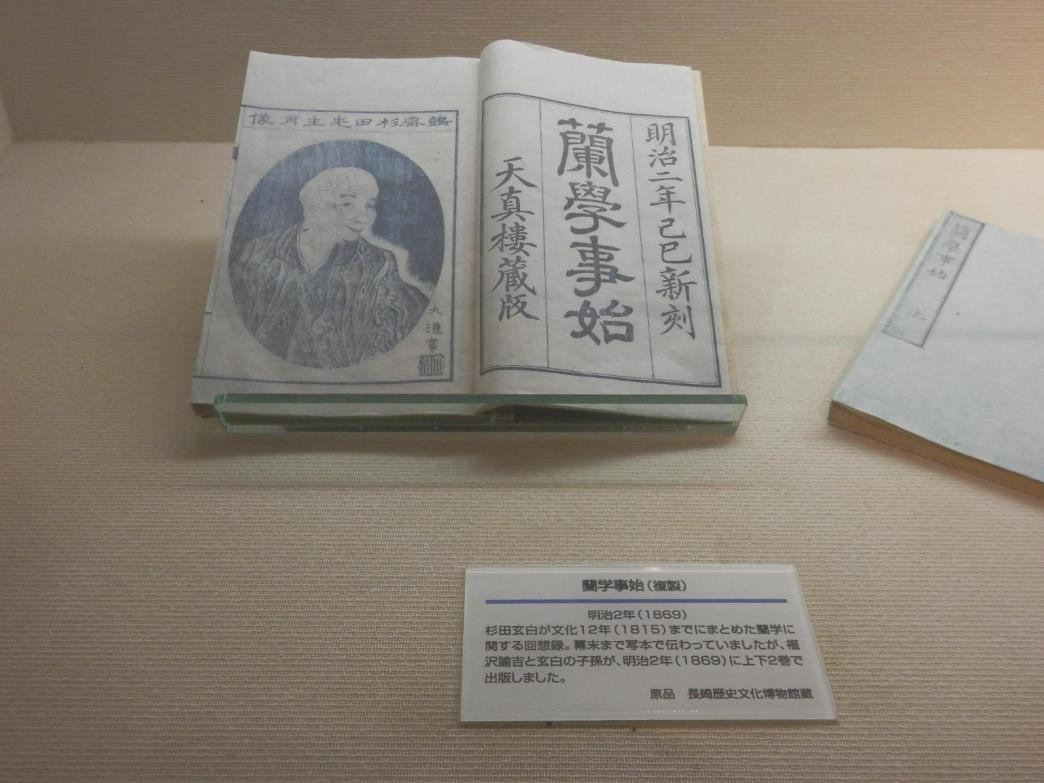 明治二年己巳新刻
蘭學事始
天真樓蔵版
鷧齋杉田先生肖像
蘭學事始 上
蘭学事始(複製)
明治2年(1869)
杉田玄白が文化12年(1815)までにまとめた蘭学に
関する回想録。幕末まで写本で伝わっていましたが、福
沢諭吉と玄白の子孫が、明治2年(1869)に上下2巻で
出版しました。
原品 長崎歴史文化博物館蔵